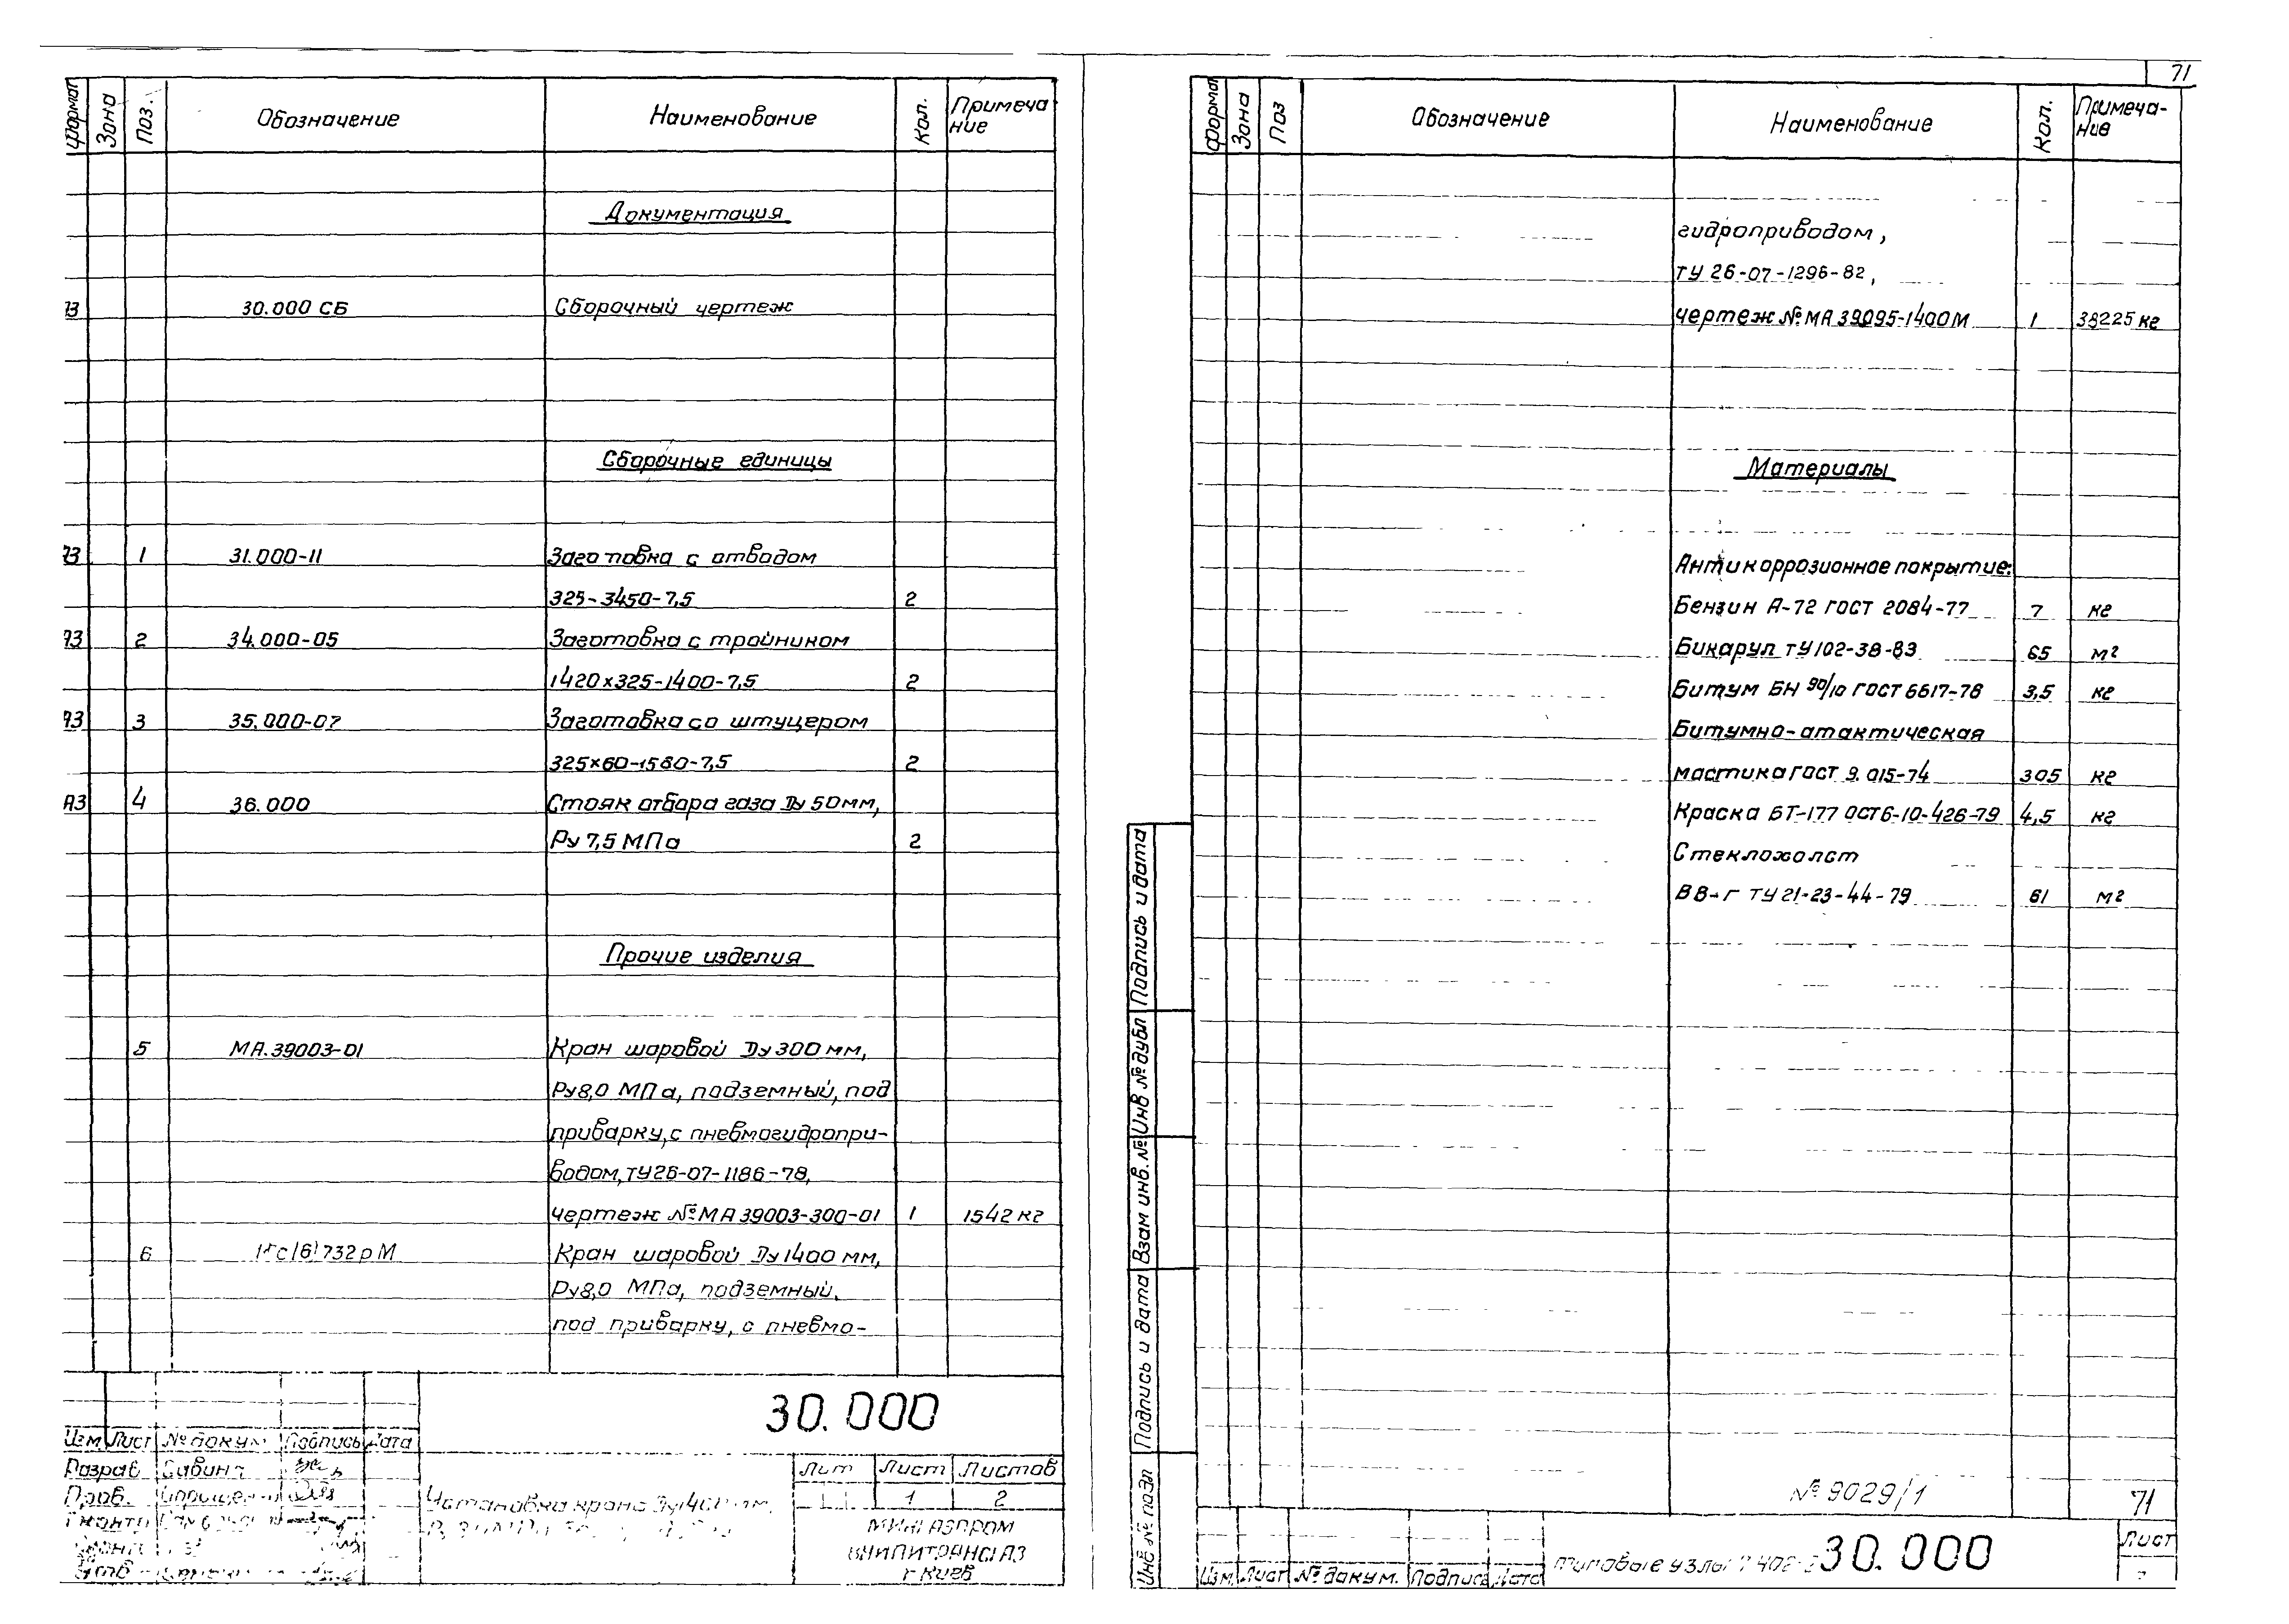 Формат Зона Поз. Обозначение Наименование Кол. Примеча
ние
Документация
30.000 СБ Сборочный чертеж
Сборочные единицы
1 31.000-11 Заготовка с отводом
325-3450-7,5 2
2 34.000-05 Заготовка с тройником
1420×325-1400-7,5 2
3 35.000-07 Заготовка со штуцером
325×60-1580-7,5 2
А3 4 36.000 Стояк отбора газа Ду 50мм,
Ру 7,5 МПа 2
Прочие изделия
5 МА.39003-01 Кран шаровой Ду 300 мм,
Ру8,0 МПа, подземный, под
приварку, с пневмогидропри-
водом, ТУ26-07-1186-78,
чертеж № МА 39003-300-01 1 1542 кг
6 732рМ Кран шаровой Ду 1400 мм,
Ру8,0 МПа, подземный,
под приварку, с пневмо-
30.000
Изм Лист № докум. Подпись Дата
Разраб Савина
Пров.
Установка крана
Лит Лист Листов
1 2
МИНГАЗПРОМ
ВНИПИТРАНСГАЗ
г Киев
71
Формат Зона Поз Обозначение Наименование Кол. Примеча-
ние
гидроприводом,
ТУ 26-07-1296-82,
чертеж № МА 39095-1400М 1 38225 кг
Материалы
Антикоррозионное покрытие:
Бензин А-72 ГОСТ 2084-77 7 кг
Бикарул ТУ102-38-83 65 м²
Битум БН 90/10 ГОСТ 6617-76 3,5 кг
Битумно-атактическая
мастика ГОСТ 9.015-74 305 кг
Краска БТ-177 ОСТ6-10-426-79 4,5 кг
Стеклохолст
ВВ-Г ТУ 21-23-44-79 61 м²
Подпись и дата
Инв № дубл
Взам инв. №
Подпись и дата
Инв № подл
№ 9029/1 71
Изм Лист № докум. Подпись Дата типовые узлы 30.000 Лист